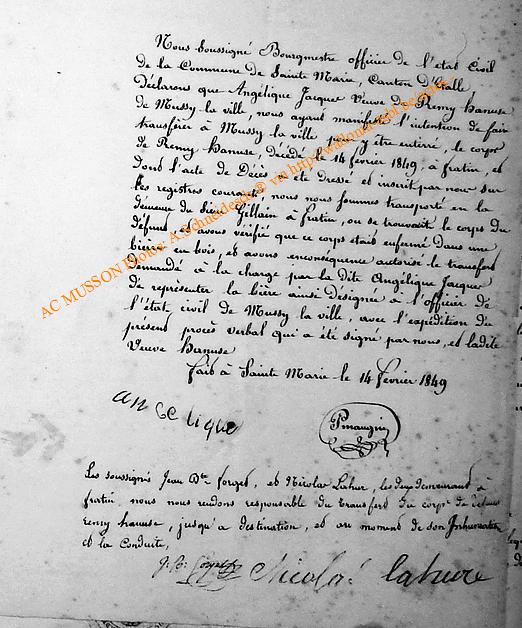 Nous Soussigné Bourgmestre officier de l'état Civil
de la Commune de Sainte Marie, Canton d'Etalle
Déclarons que Angélique Jacques Veuve de Remy Hanuse
de Mussy la ville, nous ayant manifesté l'intention de faire
transférer à Mussy la ville pour y être enterré, le corps
de Remy Hanuse, décédé le 14 février 1849, à fratin, et
dont l'acte de Décès a été dressé et inscrit par nous sur
les registres courants, nous nous sommes transporté en la
demeure du Sieur Gillain à fratin, ou se trouvait le corps du
défunt et avons vérifié que ce corps était enfermé dans une
bière en bois, et avons enconséquence autorisé le transfert
demandé à la charge par la Dite Angélique Jacques
de représenter la bière ainsi désignée à l'officier de
l'état civil de Mussy la ville, avec l'expédition du
présent procès verbal qui a été signé par nous, et ladite
Veuve Hanuse
fait à Sainte Marie le 14 fevrier 1849
angelique
Pmaugin
Les soussignés Jean Bte forget, et Nicolas Lahur, les deux demeurant à
fratin nous nous rendons responsable du transfert du corps de
remy hanuse, jusqu'a destination, et au moment de son Inhumation
et la Conduit,
J. B. forget Nicolas lahure
AC MUSSON Photos: A.Schneider